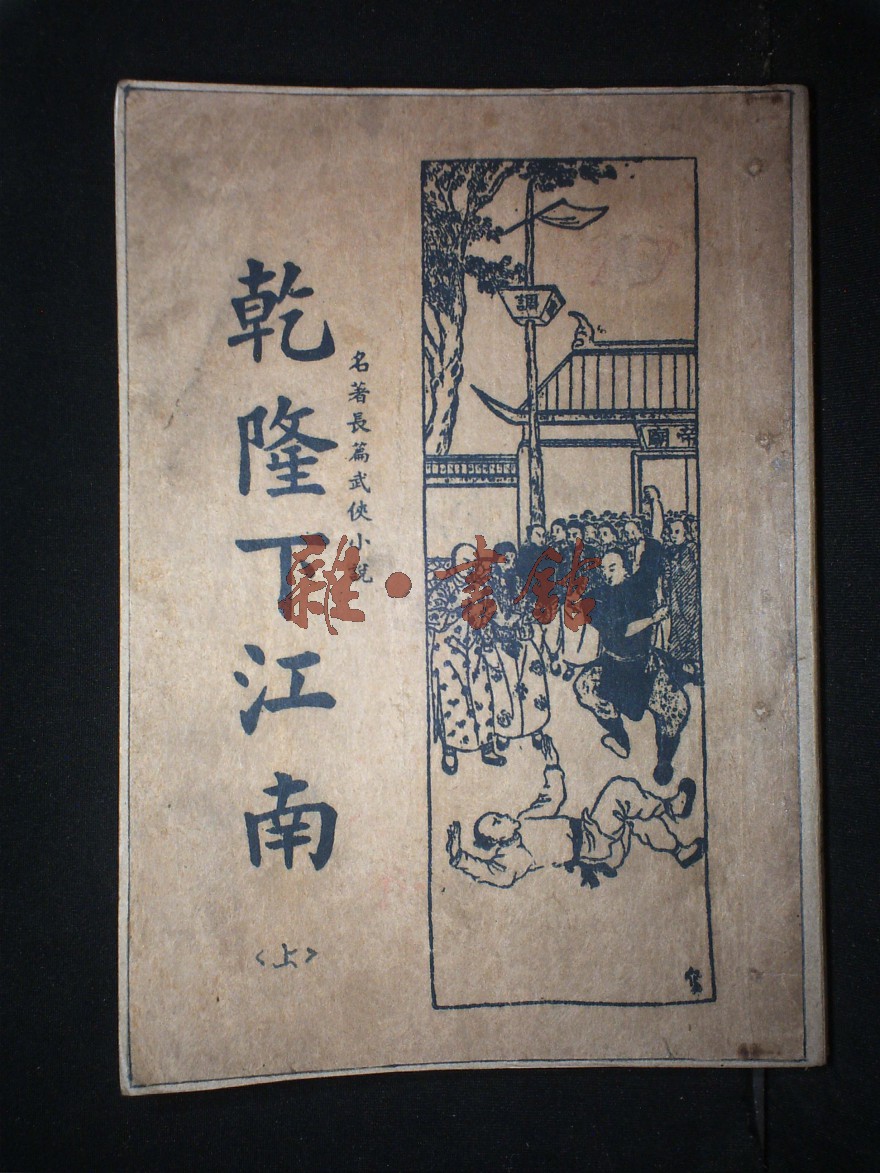 名著長篇武俠小說
乾隆下江南
<上>
調
帝廟
雜·書館